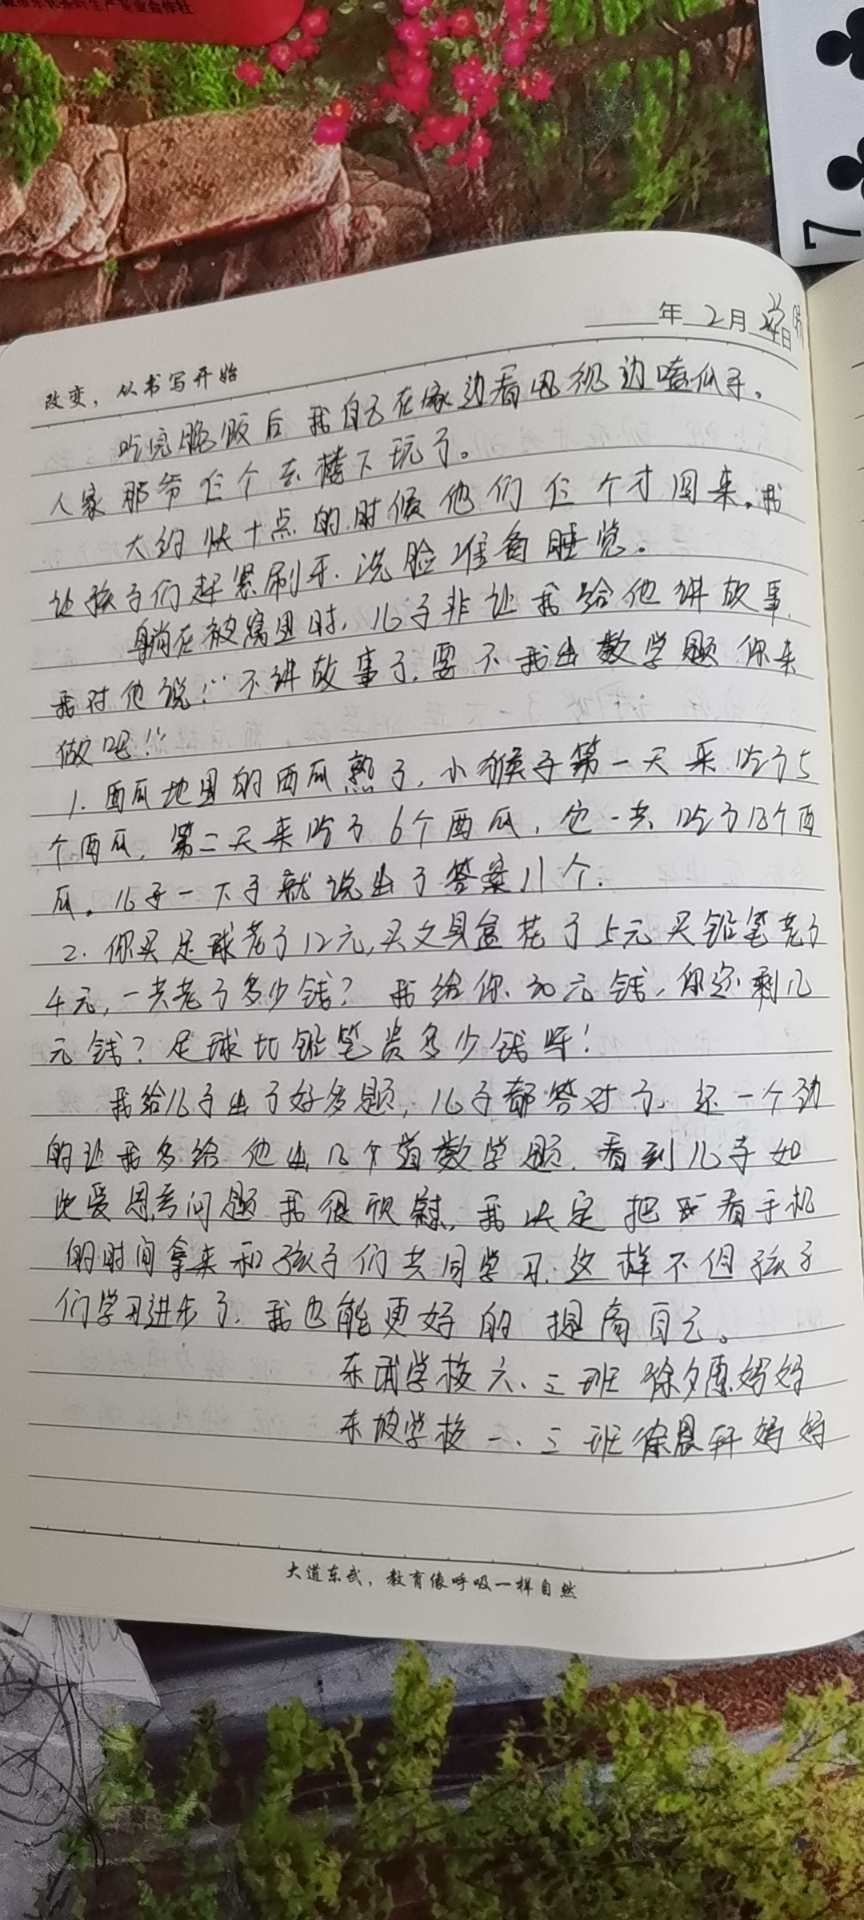 年2月 日
改变，从书写开始
吃完晚饭后我自己在家边看电视边嗑瓜子。
人家那爷仨个去楼下玩了。
大约快十点的时候他们仨个才回来。我
让孩子们赶紧刷牙.洗脸准备睡觉。
躺在被窝里时，儿子非让我给他讲故事.
我对他说：“不讲故事了，要不我出数学题你来
做吧！”
1.西瓜地里的西瓜熟了，小猴子第一天来吃了5
个西瓜，第二天来吃了6个西瓜，它一共吃了几个西
瓜。儿子一下子就说出了答案11个.
2.你买足球花了12元，买文具盒花了5元买铅笔花了
4元，一共花了多少钱？我给你30元钱，你还剩几
元钱？足球比铅笔贵多少钱呀！
我给儿子出了好多题，儿子都答对了，还一个劲
的让我多给他出几个道数学题.看到儿子如
此爱思考问题我很欣慰，我决定把 看手机
的时间拿来和孩子们共同学习.这样不但孩子
们学习进步了，我也能更好的提高自己。
东武学校六、三班徐夕惠妈妈
东坡学校一、三班徐晨轩妈妈
大道东武，教育像呼吸一样自然
7